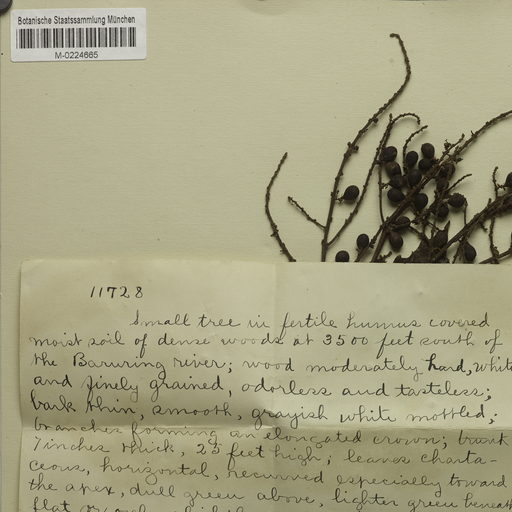 Botanische Staatssammlung München
M-0224665
11728
Small tree in fertile humus covered
moist soil of dense woods at 3500 feet south of
the Baruring river; wood moderately hard, white
and finely grained, odorless and tasteless;
bark thin, smooth, grayish white mottled;
branches forming an elongated crown; trunk
7 inches thick, 25 feet high; leaves charta-
ceous, horizontal, recurved especially toward
the apex, dull green above, lighter green beneath
flat